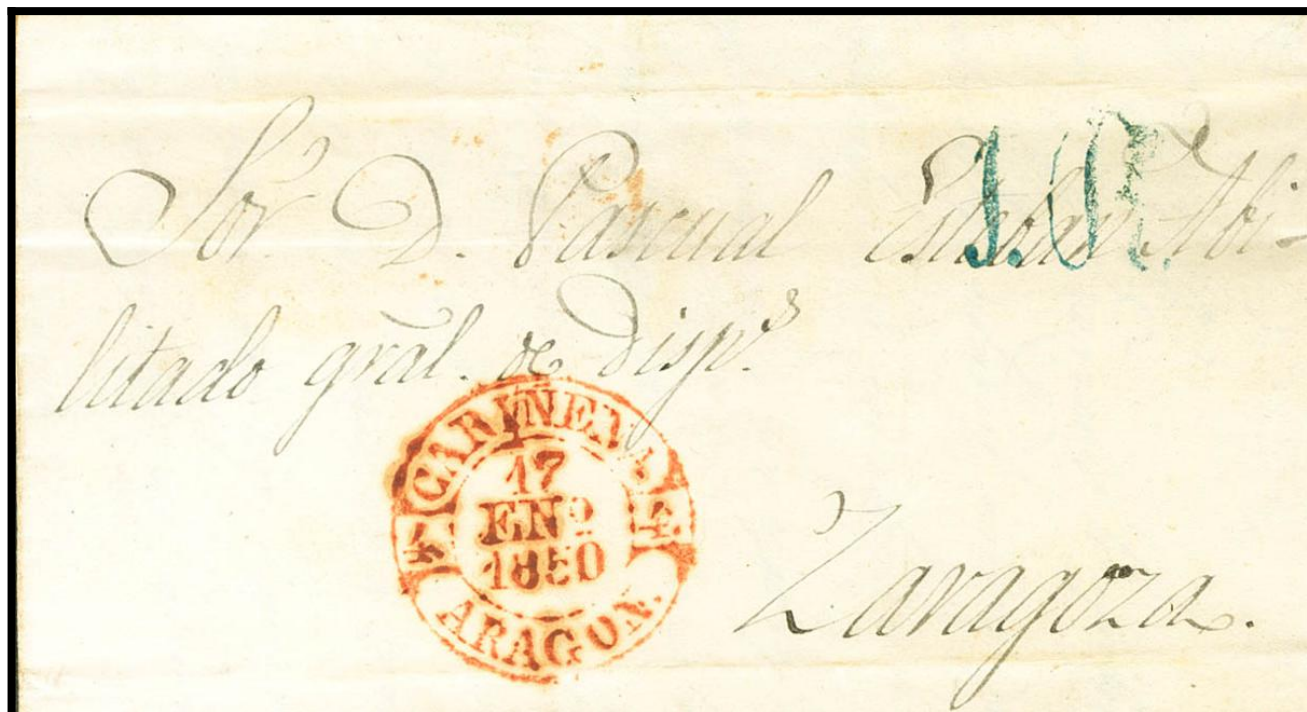 Sor. D. Pascual Esteban Abi-
litado gral. de Disp.s
CARIÑENA
17
ENº
1850
ARAGON.
Zaragoza.